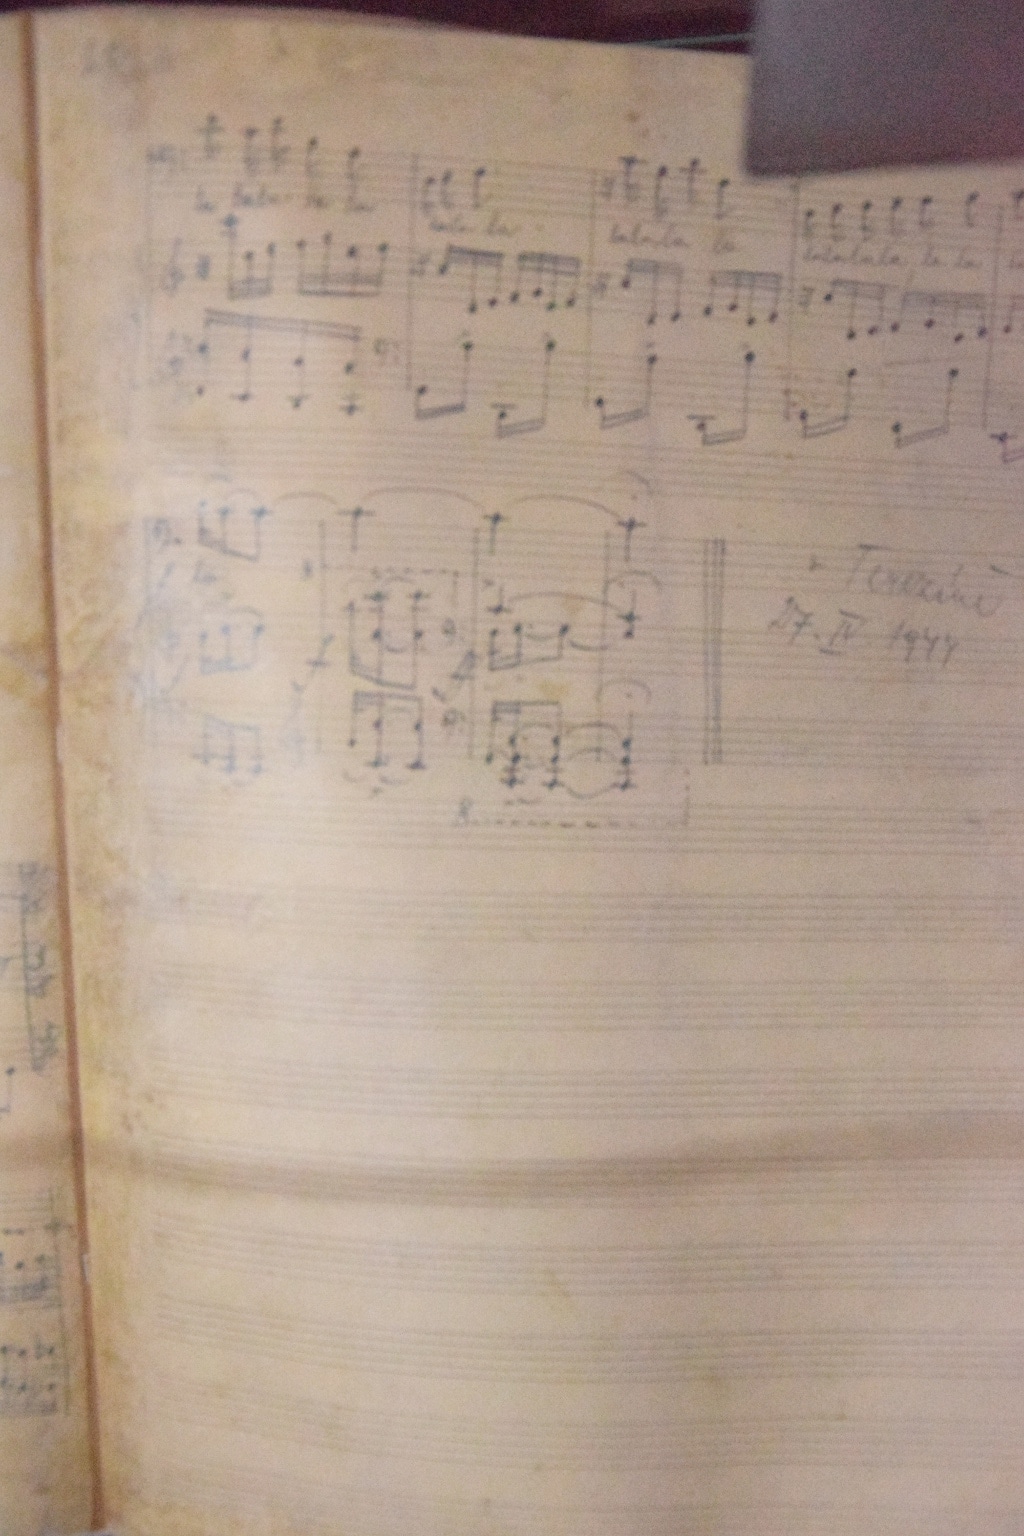 la la la la la
la la la
la la la la
la la la la la la
la
v Terezíně
27. IV 1944
8